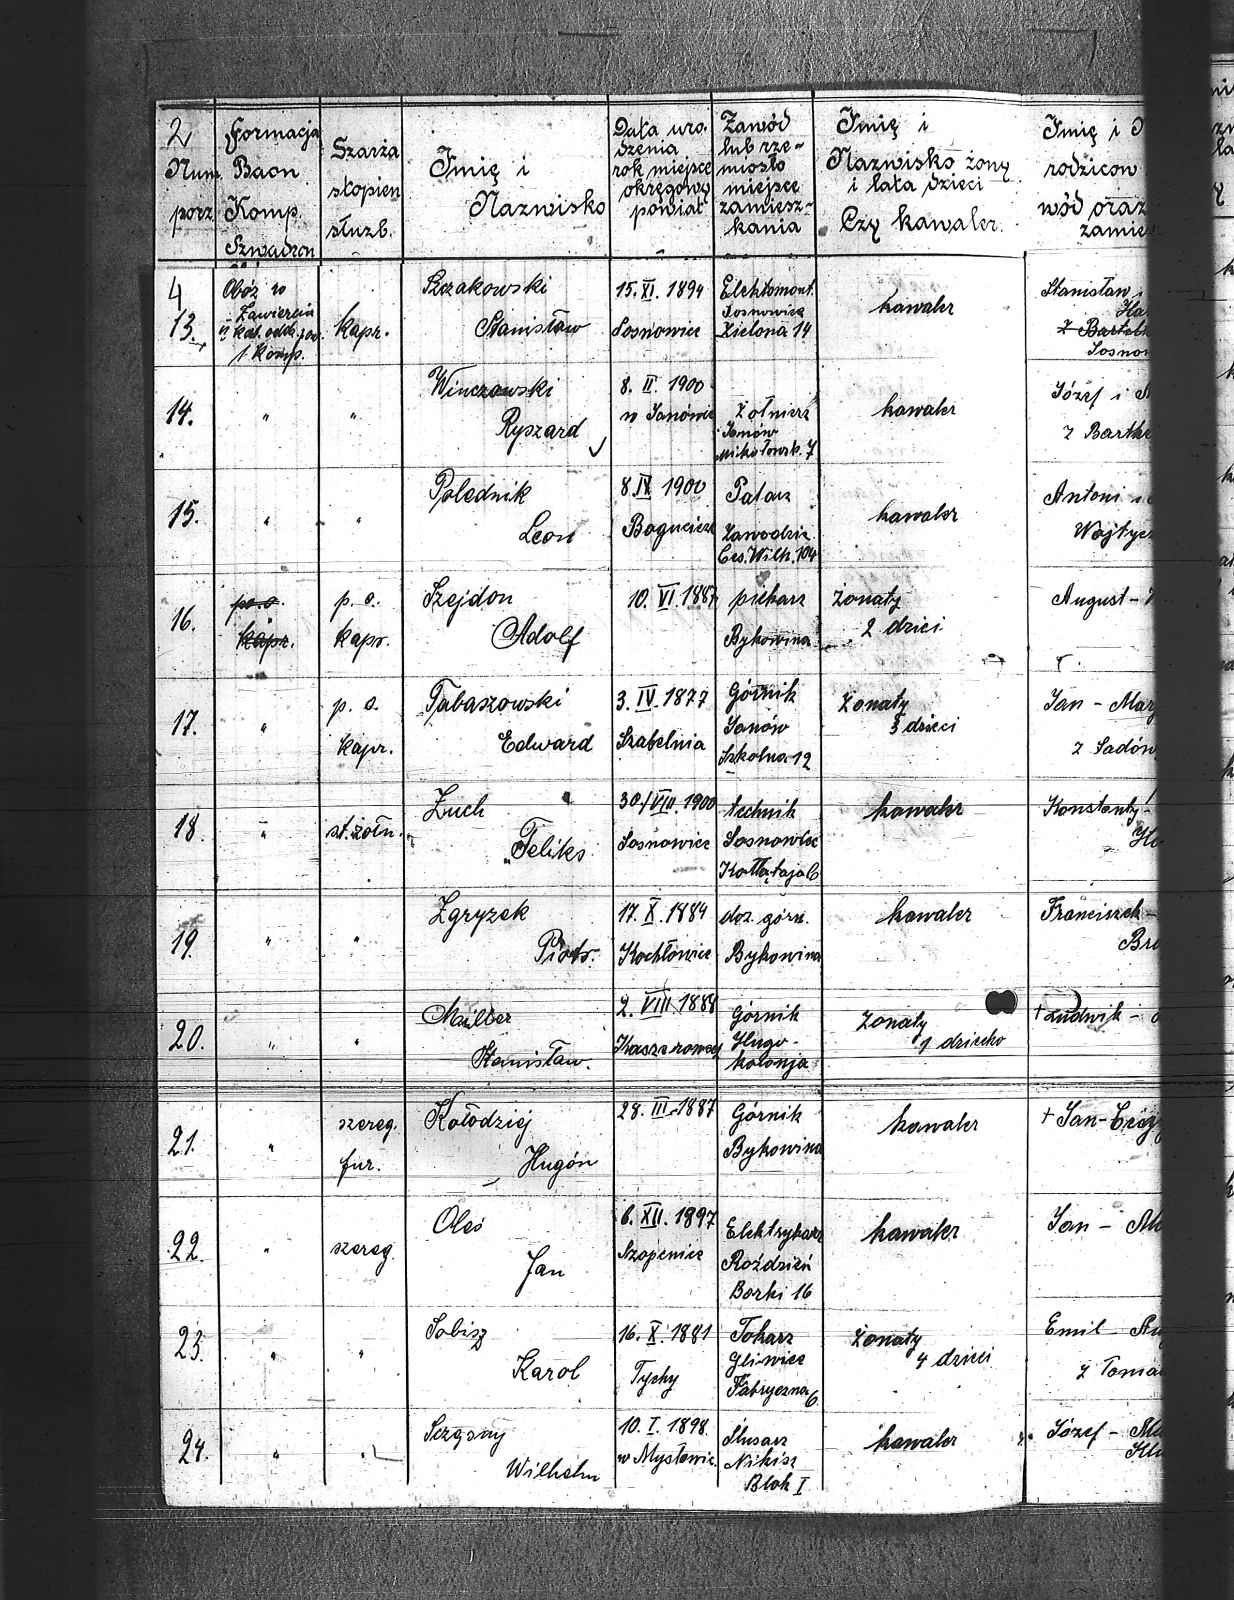 2
Num.
porz.
Formacja
Baon
Komp.
Szwadron
Szarża
stopień
służb.
Imię i
Nazwisko
Data uro-
dzenia
rok miejsce
okręgowy
powiat
Zawód
lub rze-
miosło
miejsce
zamiesz-
kania
Imię i
Nazwisko żony
i lata dzieci
Czy kawaler.
Imię i
rodziców
wód oraz
zamie
4
13.
Obóz w
Zawierciu
1 komp.
kapr.
Szczakowski
Stanisław
15. XI. 1894
Sosnowiec
Elektomont.
Sosnowice
Zielona 14
kawaler
Stanisław
z Bartel
Sosno
14.
"
"
Winczowski
Ryszard
8. II. 1900
w Janówie
Żołnierz
Janów
Mikołowsk. 7
kawaler
Józef i
z Bartke
15.
"
"
Polednik
Leon
8. IX 1900
Bogucice
Palacz
Zawodzie
Ces. Wilh. 104
kawaler
Antoni
Wojtycz
16.
p. o.
kapr.
p. o.
kapr.
Szejdon
Adolf
10. VI. 1887
piekarz
Bykowina
żonaty
2 dzieci
August -
17.
"
p. o.
kapr.
Tabaszowski
Edward
3. IV. 1877
Szabelnia
Górnik
Janów
Szkolna 12
żonaty
5 dzieci
Jan - Mar
z Sadów
18.
"
st. żołn.
Zuch
Feliks
30/VIII. 1900
Sosnowiec
technik
Sosnowiec
Kołłątaja 6
kawaler
Konstanty -
19.
"
"
Zgryzek
Piotr.
17. X. 1884
Kochłowice
doz. górn.
Bykowina
kawaler
Franciszek -
Br
20.
"
"
Miller
Stanisław.
2. VIII 1888
Górnik
Hugo-
kolonja
żonaty
1 dziecko
+ Ludwik -
21.
"
szereg.
fur.
Kołodziej
Hugon
28. III. 1887
Górnik
Bykowina
kawaler
+ Jan -
22.
"
szereg.
Oleś
Jan
6. XII. 1897
Szopienice
Elektrykarz
Roździeń
Borki 16
kawaler
Jan -
23.
"
"
Sobisz
Karol
16. X. 1881
Tychy
Tokarz
Gliwice
Fabryczna 6
żonaty
4 dzieci
Emil -
z Toma
24.
"
"
Szczęsny
Wilhelm
10. I. 1898.
w Mysłowic.
Ślusarz
Nikisz
Blok I
kawaler
Józef -